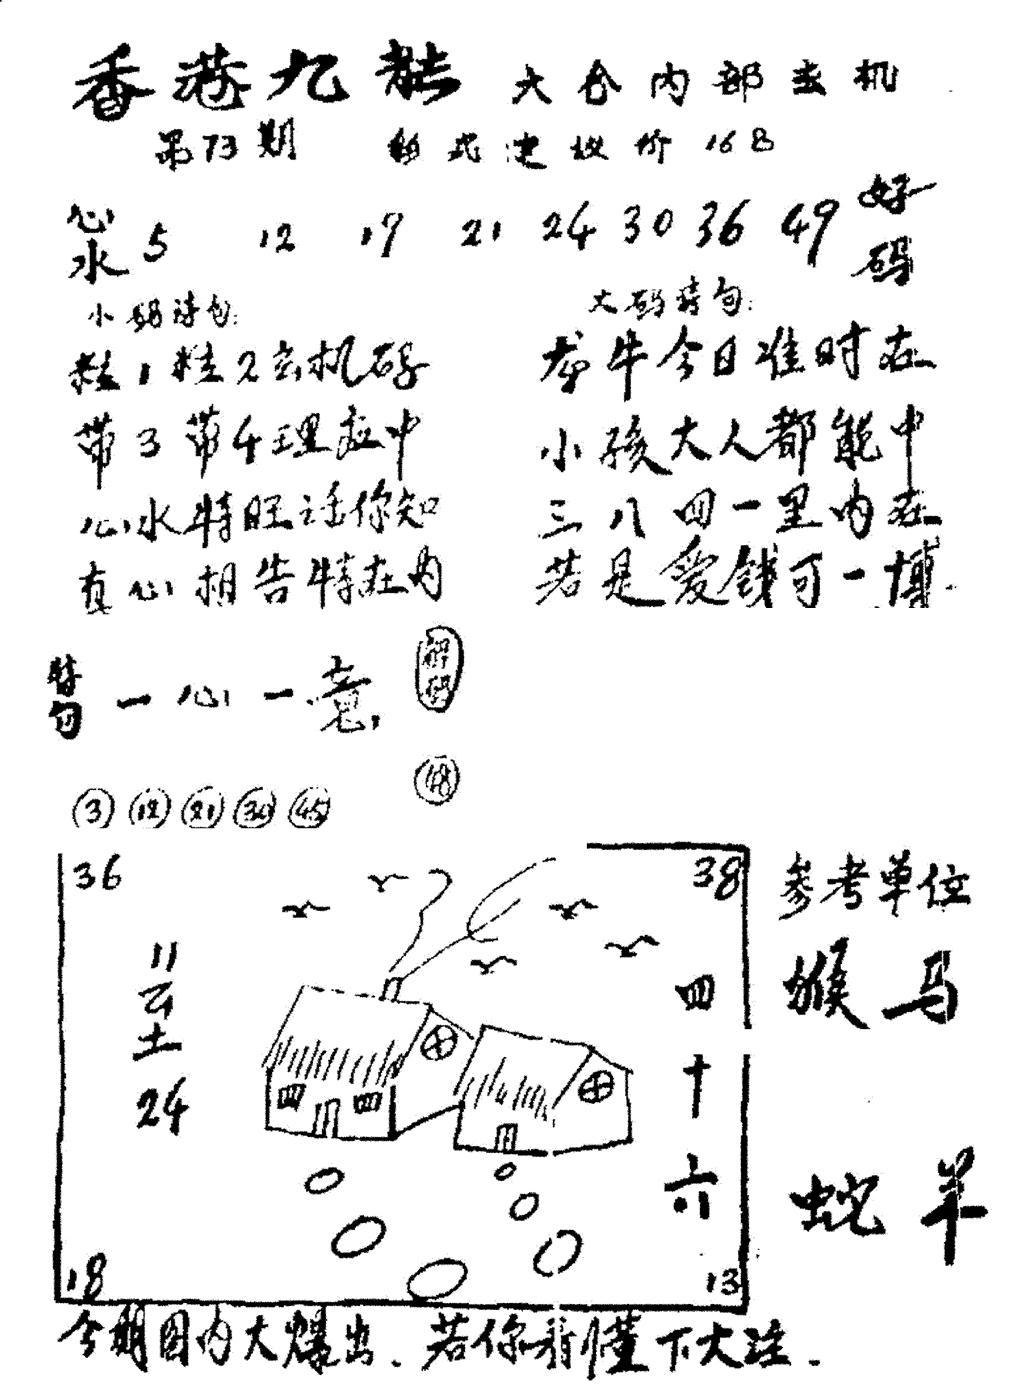 香港九龙 大仓内部玄机
第73期 建议价 168
心水 5 12 17 21 24 30 36 49 好码
小码诗句:
粒1粒2玄机码
带3带4理应中
心水特旺话你知
真心相告特在内
大码诗句:
龙牛今日准时在
小孩大人都能中
三八四一里内在
若是爱钱可一博.
特句 一心一意,
解码
48
3 12 21 30 45
36 38
24
四十六
18 13
参考单位
猴 马
蛇 羊
今期图内大爆出、若你看懂下大注.